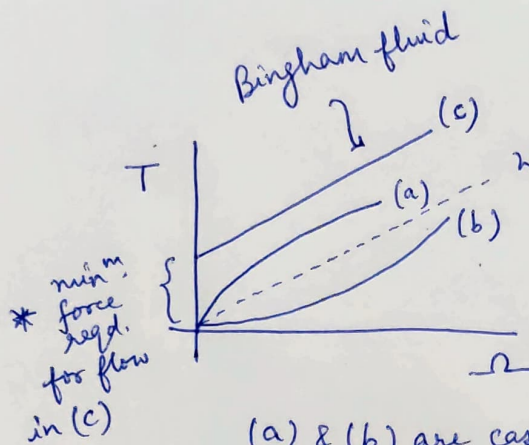 Bingham fluid
(c)
T
(a)
(b)
* minᵐ.
force
reqd.
for flow
in (c)
Ω
(a) & (b) are cas